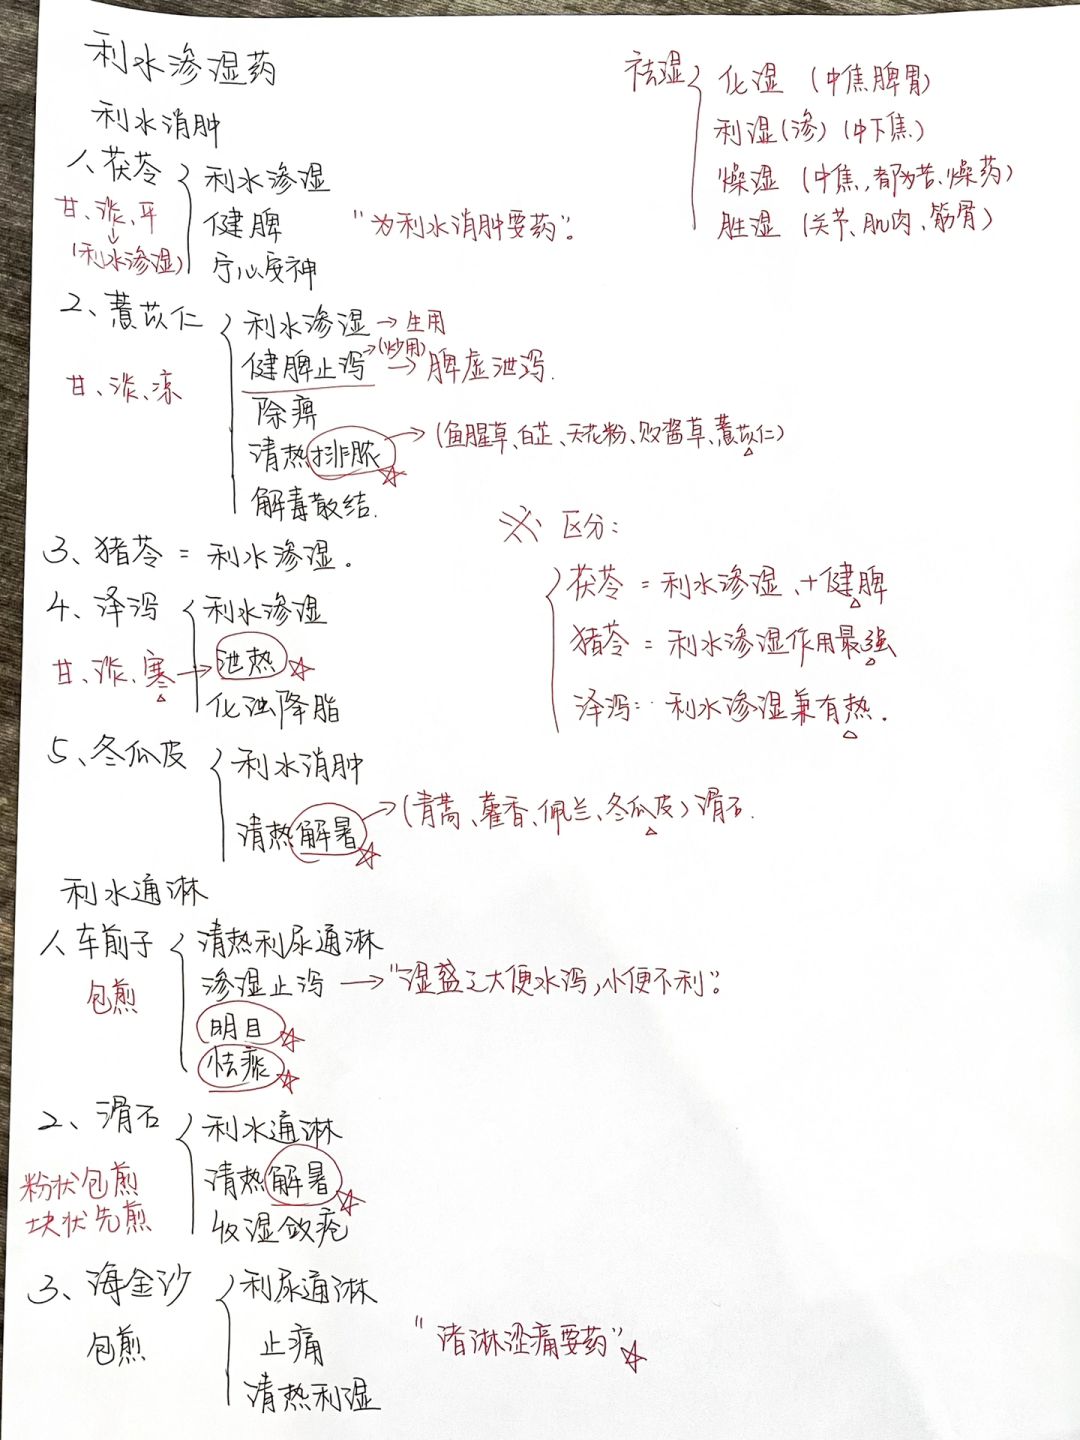 利水渗湿药
祛湿
化湿 (中焦脾胃)
利湿(渗) (中下焦)
燥湿 (中焦,都为苦、燥药)
胜湿 (关节、肌肉、筋骨)
利水消肿
1、茯苓
甘、淡、平
↓
(利水渗湿)
利水渗湿
健脾
宁心安神
"为利水消肿要药".
2、薏苡仁
甘、淡、凉
利水渗湿→生用
健脾止泻→(炒用)→脾虚泄泻.
除痹
清热排脓→(鱼腥草、白芷、天花粉、败酱草、薏苡仁)
解毒散结.
3、猪苓 = 利水渗湿.
4、泽泻
甘、淡、寒→
利水渗湿
泄热
化浊降脂
※ 区分:
茯苓 = 利水渗湿、+健脾
猪苓 = 利水渗湿作用最强
泽泻: 利水渗湿兼有热.
5、冬瓜皮
利水消肿
清热解暑→(青蒿、藿香、佩兰、冬瓜皮)滑石.
利水通淋
1、车前子
包煎
清热利尿通淋
渗湿止泻→"湿盛之大便水泻,小便不利".
明目
祛痰
2、滑石
粉状包煎
块状先煎
利水通淋
清热解暑
收湿敛疮
3、海金沙
包煎
利尿通淋
止痛
清热利湿
"诸淋涩痛要药"